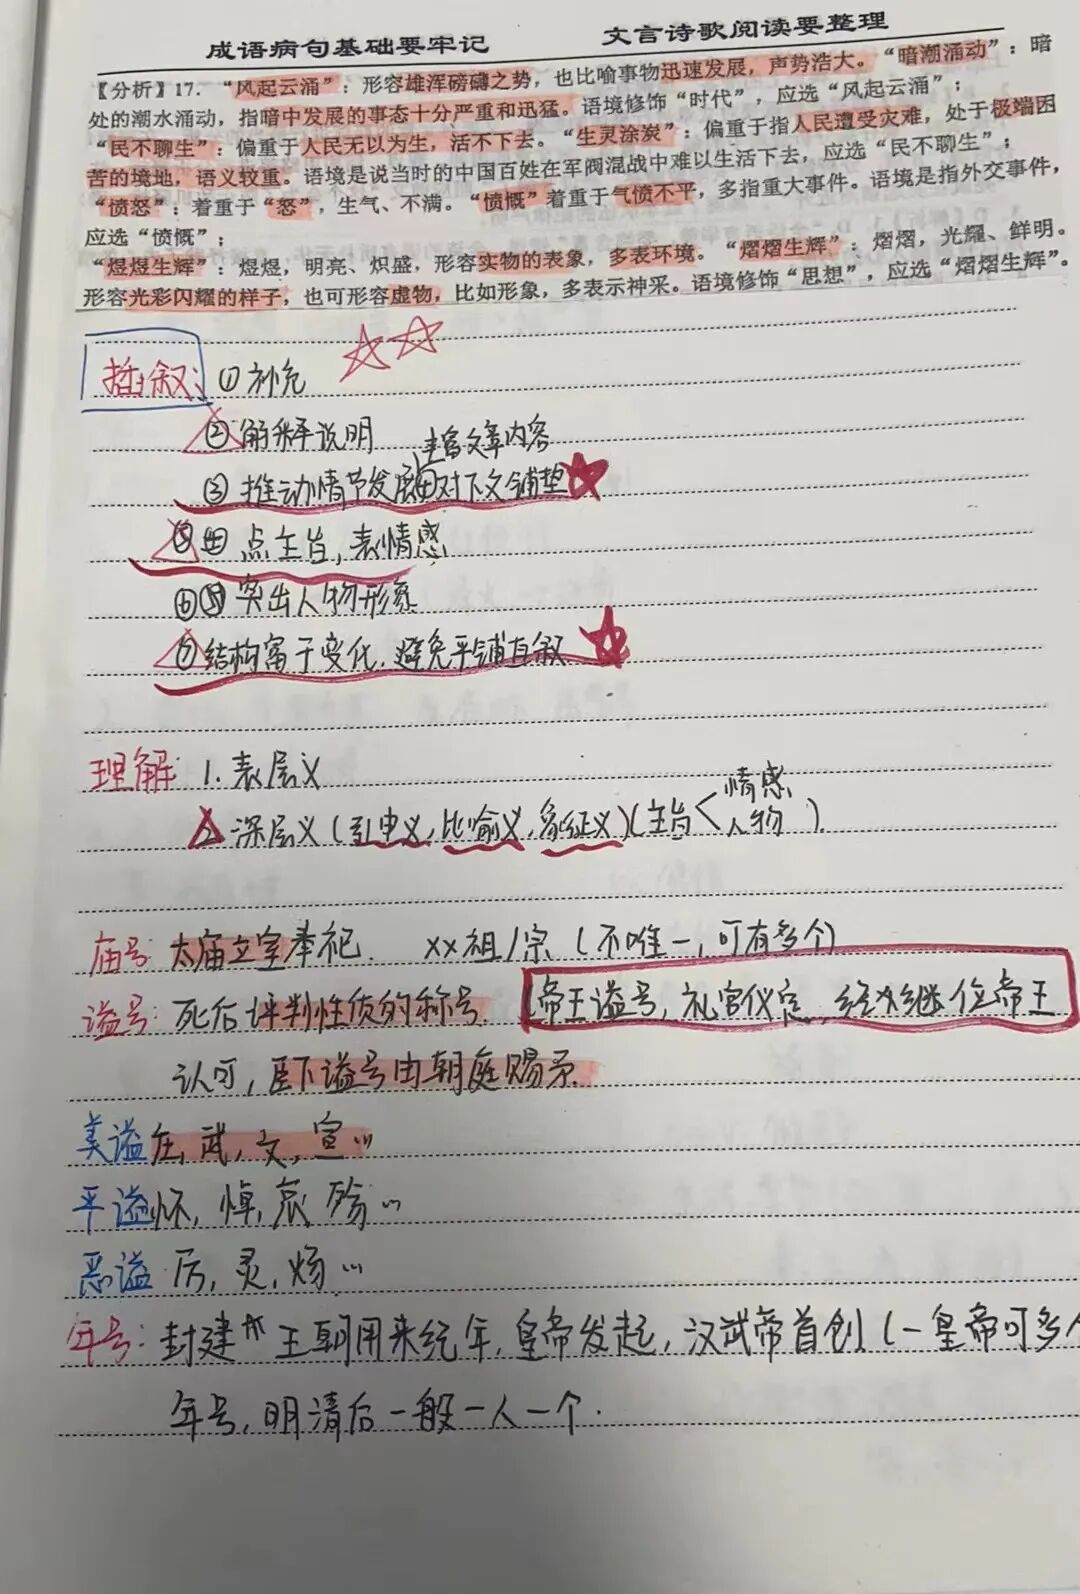 成语病句基础要牢记 文言诗歌阅读要整理
【分析】17.“风起云涌”：形容雄浑磅礴之势，也比喻事物迅速发展，声势浩大。“暗潮涌动”：暗
处的潮水涌动，指暗中发展的事态十分严重和迅猛。语境修饰“时代”，应选“风起云涌”；
“民不聊生”：偏重于人民无以为生，活不下去。“生灵涂炭”：偏重于指人民遭受灾难，处于极端困
苦的境地，语义较重。语境是说当时的中国百姓在军阀混战中难以生活下去，应选“民不聊生”；
“愤怒”：着重于“怒”，生气、不满。“愤慨”着重于气愤不平，多指重大事件。语境是指外交事件，
应选“愤慨”；
“煜煜生辉”：煜煜，明亮、炽盛，形容实物的表象，多表环境。“熠熠生辉”：熠熠，光耀、鲜明。
形容光彩闪耀的样子，也可形容虚物，比如形象，多表示神采。语境修饰“思想”，应选“熠熠生辉”。
插叙：①补充
②解释说明
丰富文章内容
③推动情节发展④对下文铺垫
⑤点主旨，表情感
⑥突出人物形象
⑦结构富于变化，避免平铺直叙
理解：1.表层义
2.深层义（引申义，比喻义，象征义）（主旨<情感 人物）.
庙号：太庙立室奉祀． xx祖/宗（不唯一，可有多个）
谥号：死后评判性质的称号． 帝王谥号，礼官仪定，经继位帝王
认可，臣下谥号由朝庭赐予．
美谥 庄，武，文，宣…
平谥 怀，悼，哀，殇…
恶谥 厉，灵，炀…
年号：封建王朝用来纪年，皇帝发起，汉武帝首创（一皇帝可多个
年号，明清后一般一人一个．